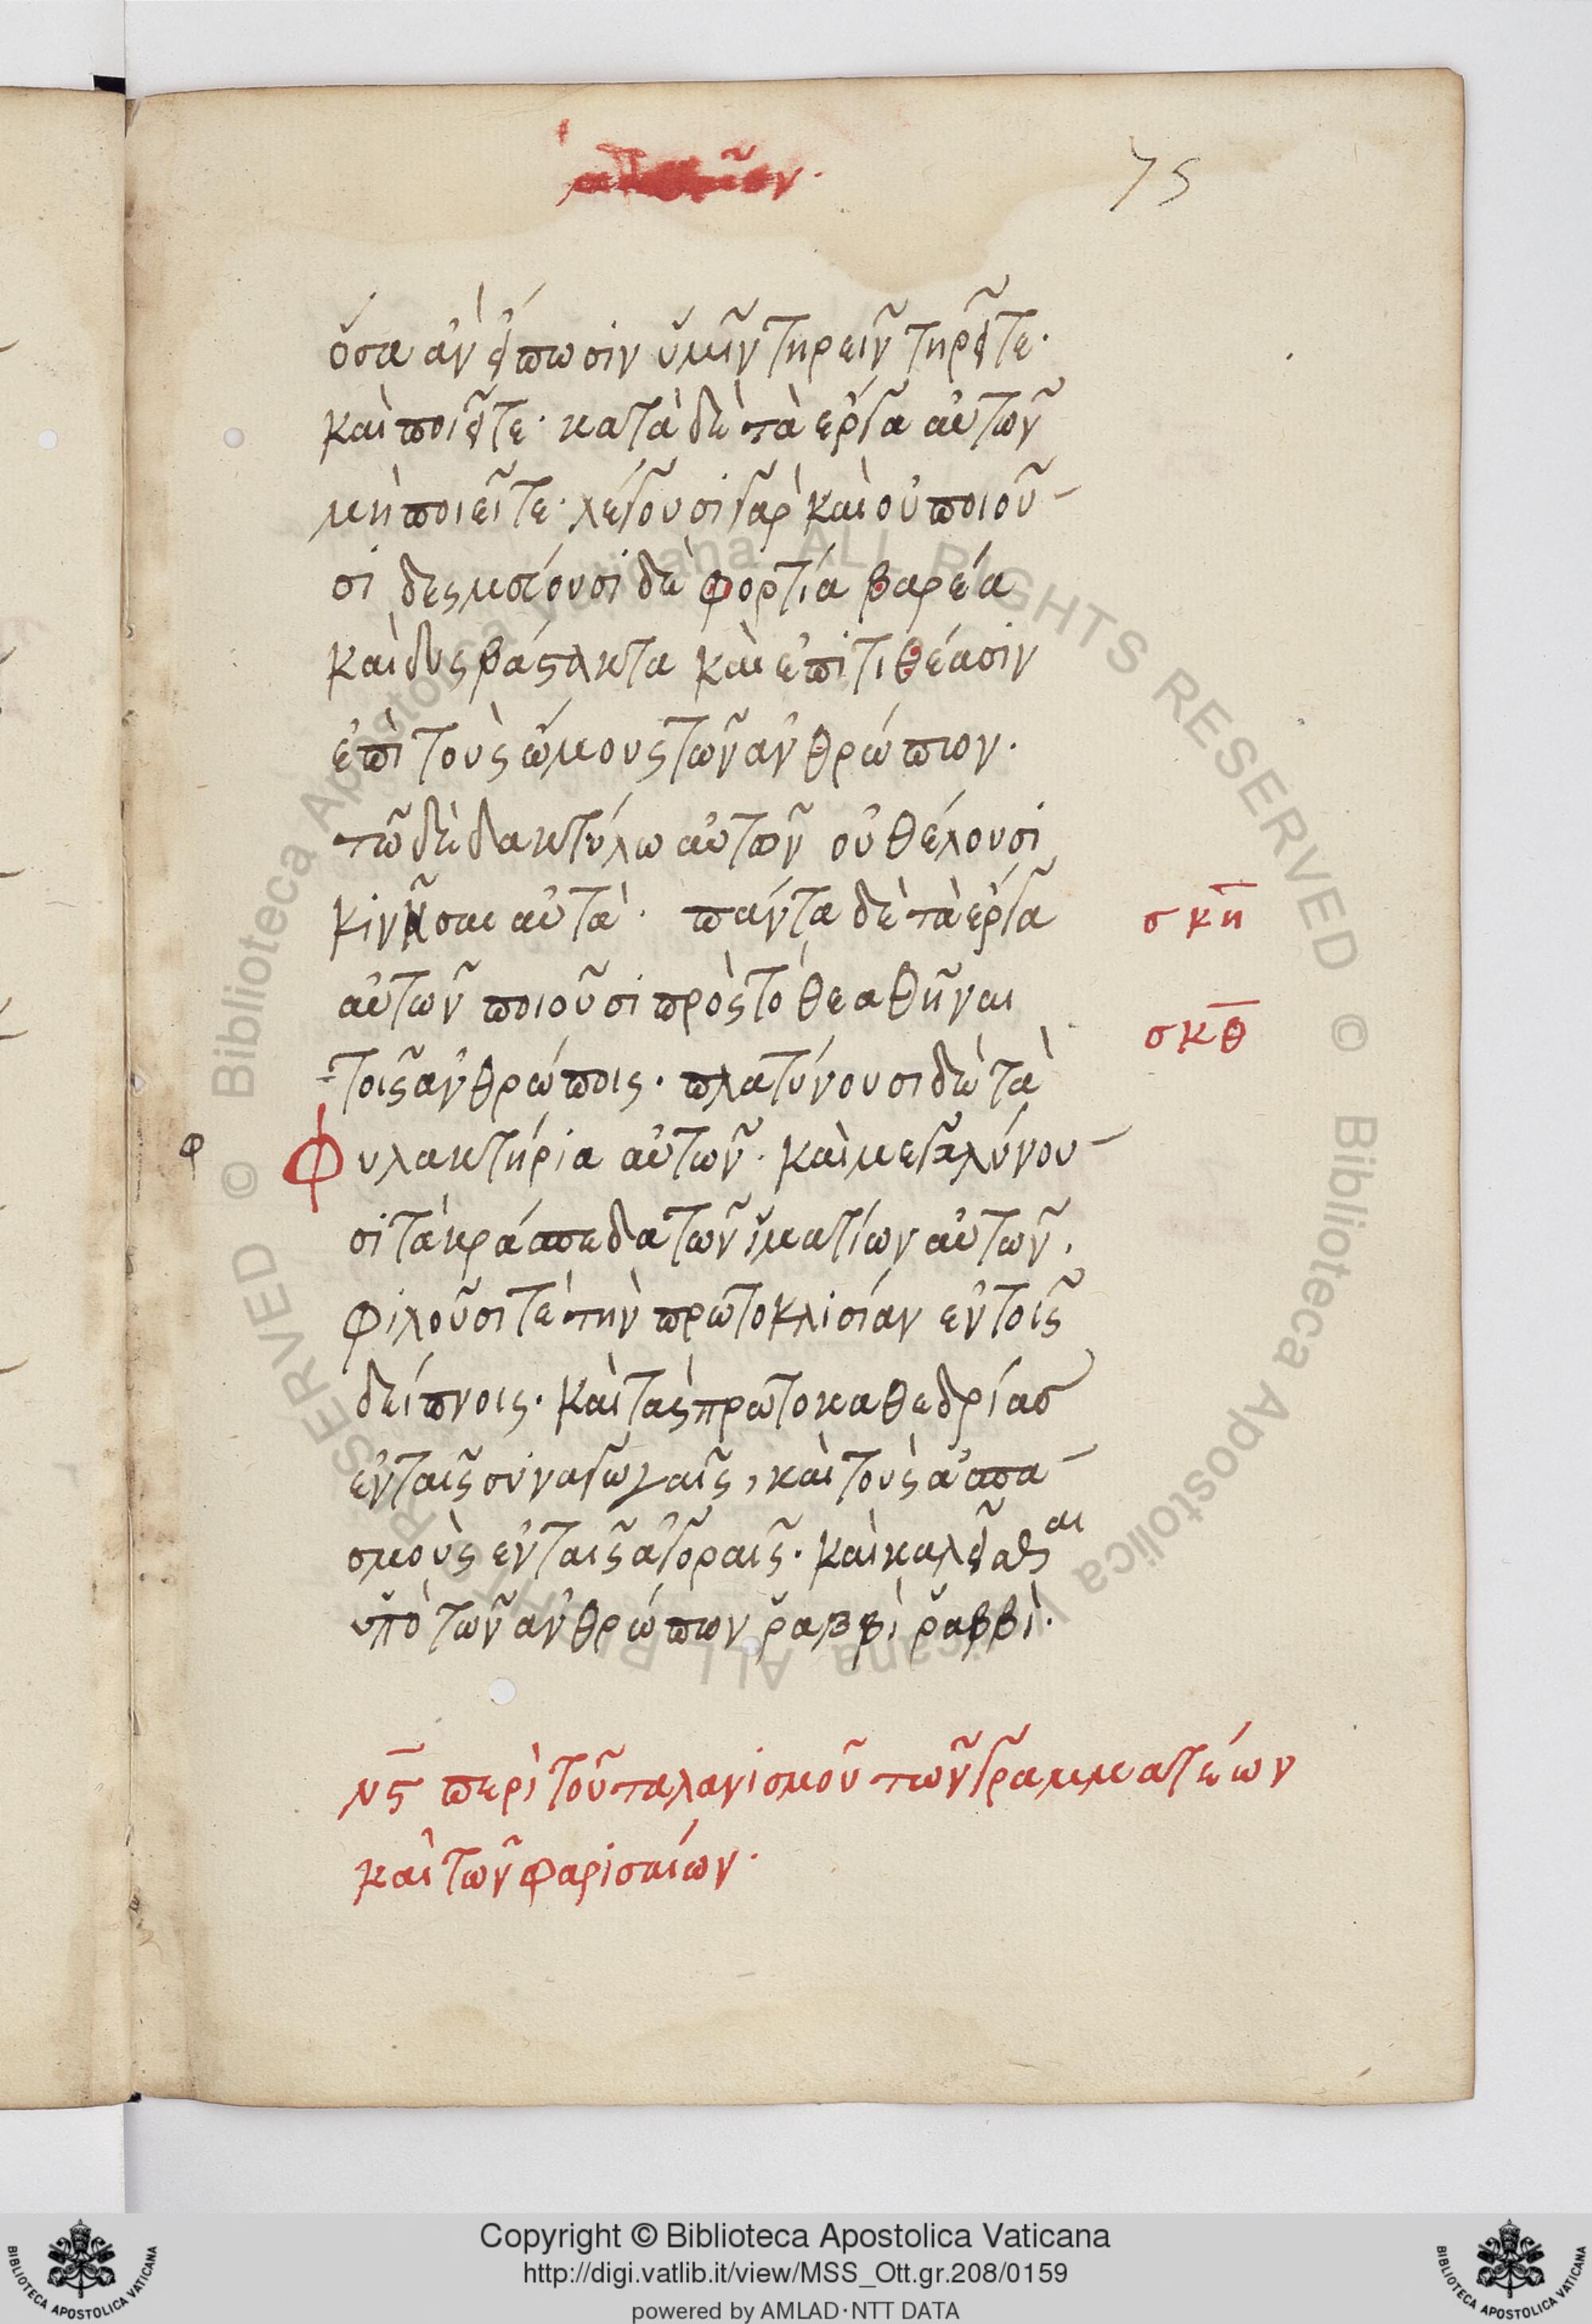 75
ὅσα ἀν εἴπωσιν ὑμῖν τηρεῖν τηρεῖτε·
καὶ ποιεῖτε· κατὰ δὲ τὰ ἔργα αὐτῶν
μὴ ποιεῖτε· λέγουσι γὰρ καὶ οὐ ποιοῦ-
σι δεσμεύουσι δὲ φορτία βαρέα
καὶ δυσβάστακτα καὶ ἐπιτιθέασιν
ἐπὶ τοὺς ὤμους τῶν ἀνθρώπων.
τῶ δὲ δακτύλω αὐτῶν οὐ θέλουσι
κινῆσαι αὐτά· πάντα δὲ τὰ ἔργα
σκη
αὐτῶν ποιοῦσι πρὸς τὸ θεαθῆναι
σκθ
τοῖς ἀνθρώποις· πλατύνουσι δὲ τὰ
φ
Φυλακτήρια αὐτῶν· καὶ μεγαλύνου-
σι τὰ κράσπεδα τῶν ἱματίων αὐτῶν.
φιλοῦσι τὲ τὴν πρωτοκλισίαν ἐν τοῖς
δείπνοις· καὶ τὰς πρωτοκαθεδρίας
ἐν ταῖς συναγωγαῖς, καὶ τοὺς ἀσπα-
σμοὺς ἐν ταῖς ἀγοραῖς· καὶ καλεῖσθαι
ὑπὸ τῶν ἀνθρώπων ῥαββὶ ῥαββὶ·
νς περὶ τοῦ ταλανισμοῦ τῶν γραμματέων
καὶ τῶν φαρισαίων·
Copyright © Biblioteca Apostolica Vaticana
http://digi.vatlib.it/view/MSS_Ott.gr.208/0159
powered by AMLAD·NTT DATA